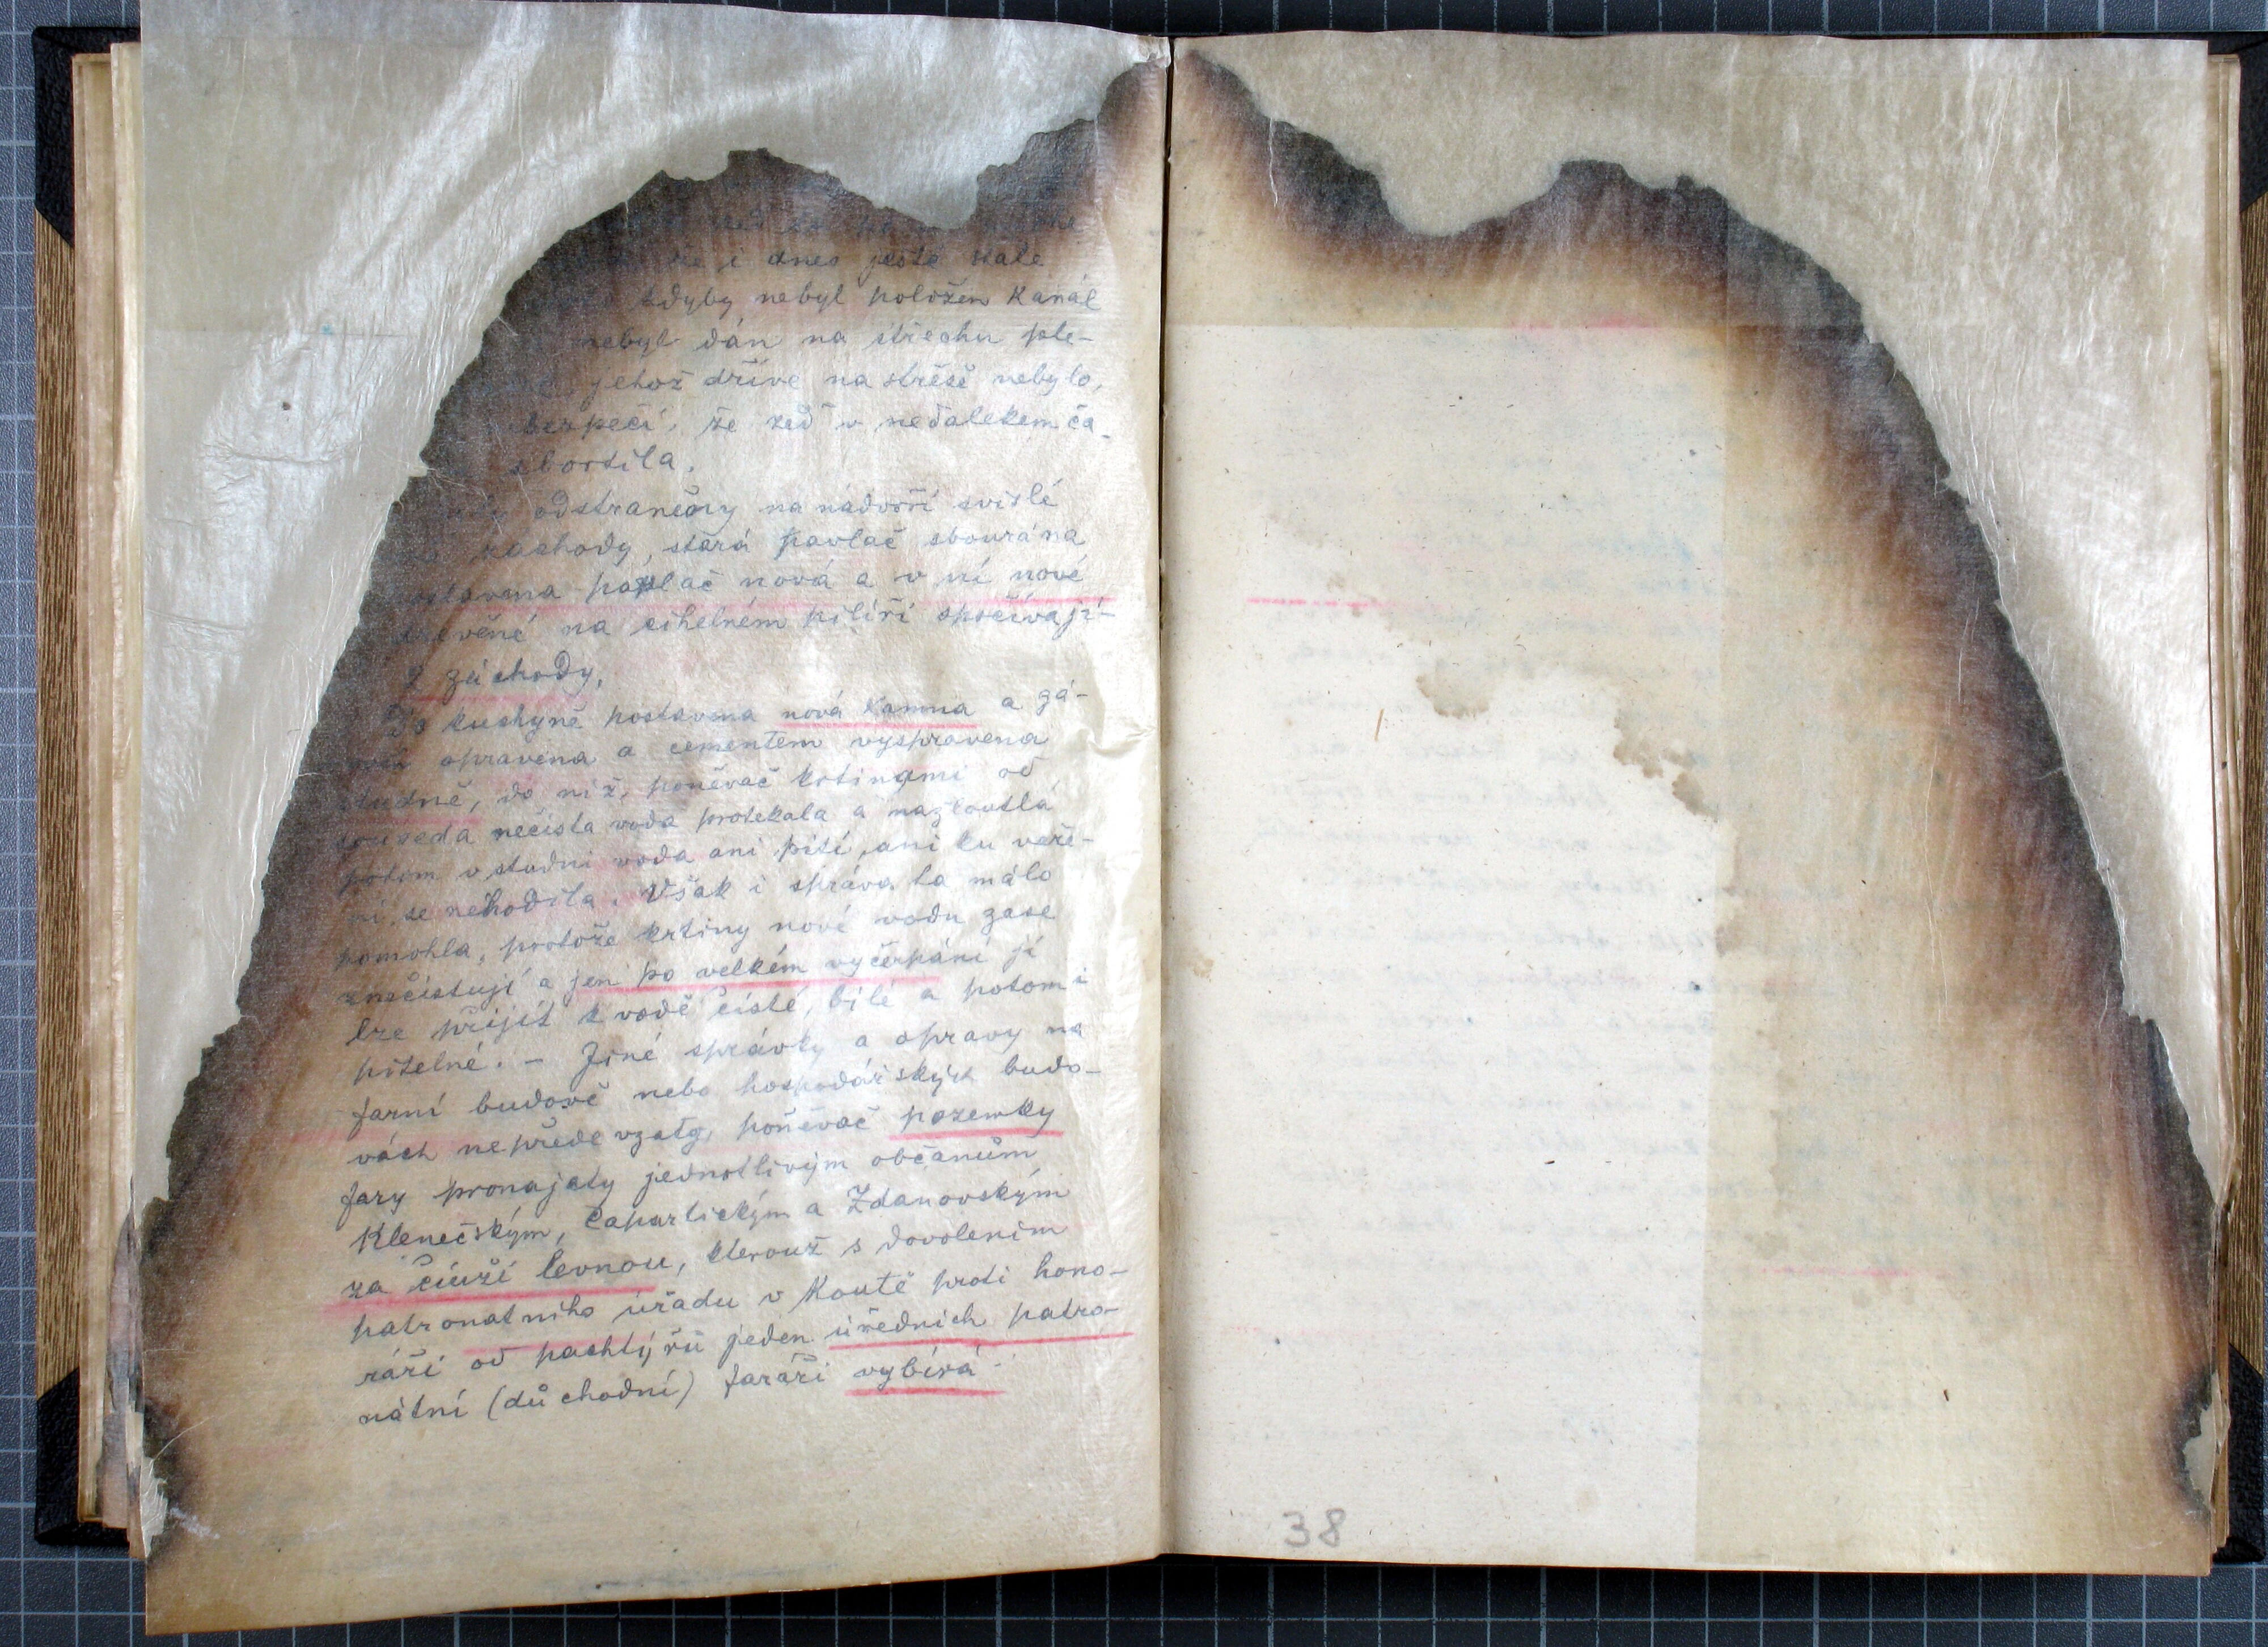 že i dnes ještě stále
kdyby nebyl položen kanál
nebyl dán na střechu ple-
jehož dříve na střěše nebylo,
bezpečí, že zeď v nedalekem ča-
sbortila.
odstraněny na nádvoří svislé
záchody, stará pavlač sbourána
postavena pavlač nová a v ní nové
dřevěné na cihelném pilíři spočívají-
2 záchody.
Do kuchyně postavena nová kamna a zá-
opravena a cementem vyspravena
studně, do niž, poněvač krtinami od
souseda nečista voda protekala a nažloutlá
potom v studni voda ani pití, ani ku vaře-
ní se nehodila. Však i správa ta málo
pomohla, protože krtiny nové vodu zase
znečistují a jen po velkém vyčerpání jí
lze přijít k vodě čisté, bílé a potom i
pitelné. - Jiné správky a opravy na
farní budově nebo hospodářských budo-
vách nepředevzaty, poněvač pozemky
fary pronajaty jednotlivým občanům
Klenečským, Čapartickým a Ždanovským
za činži levnou, kterouž s dovolením
patronatního úřadu v Koutě proti hono-
ráři od pachtýřů jeden úředních patro-
nátní (důchodní) faráři vybírá
38